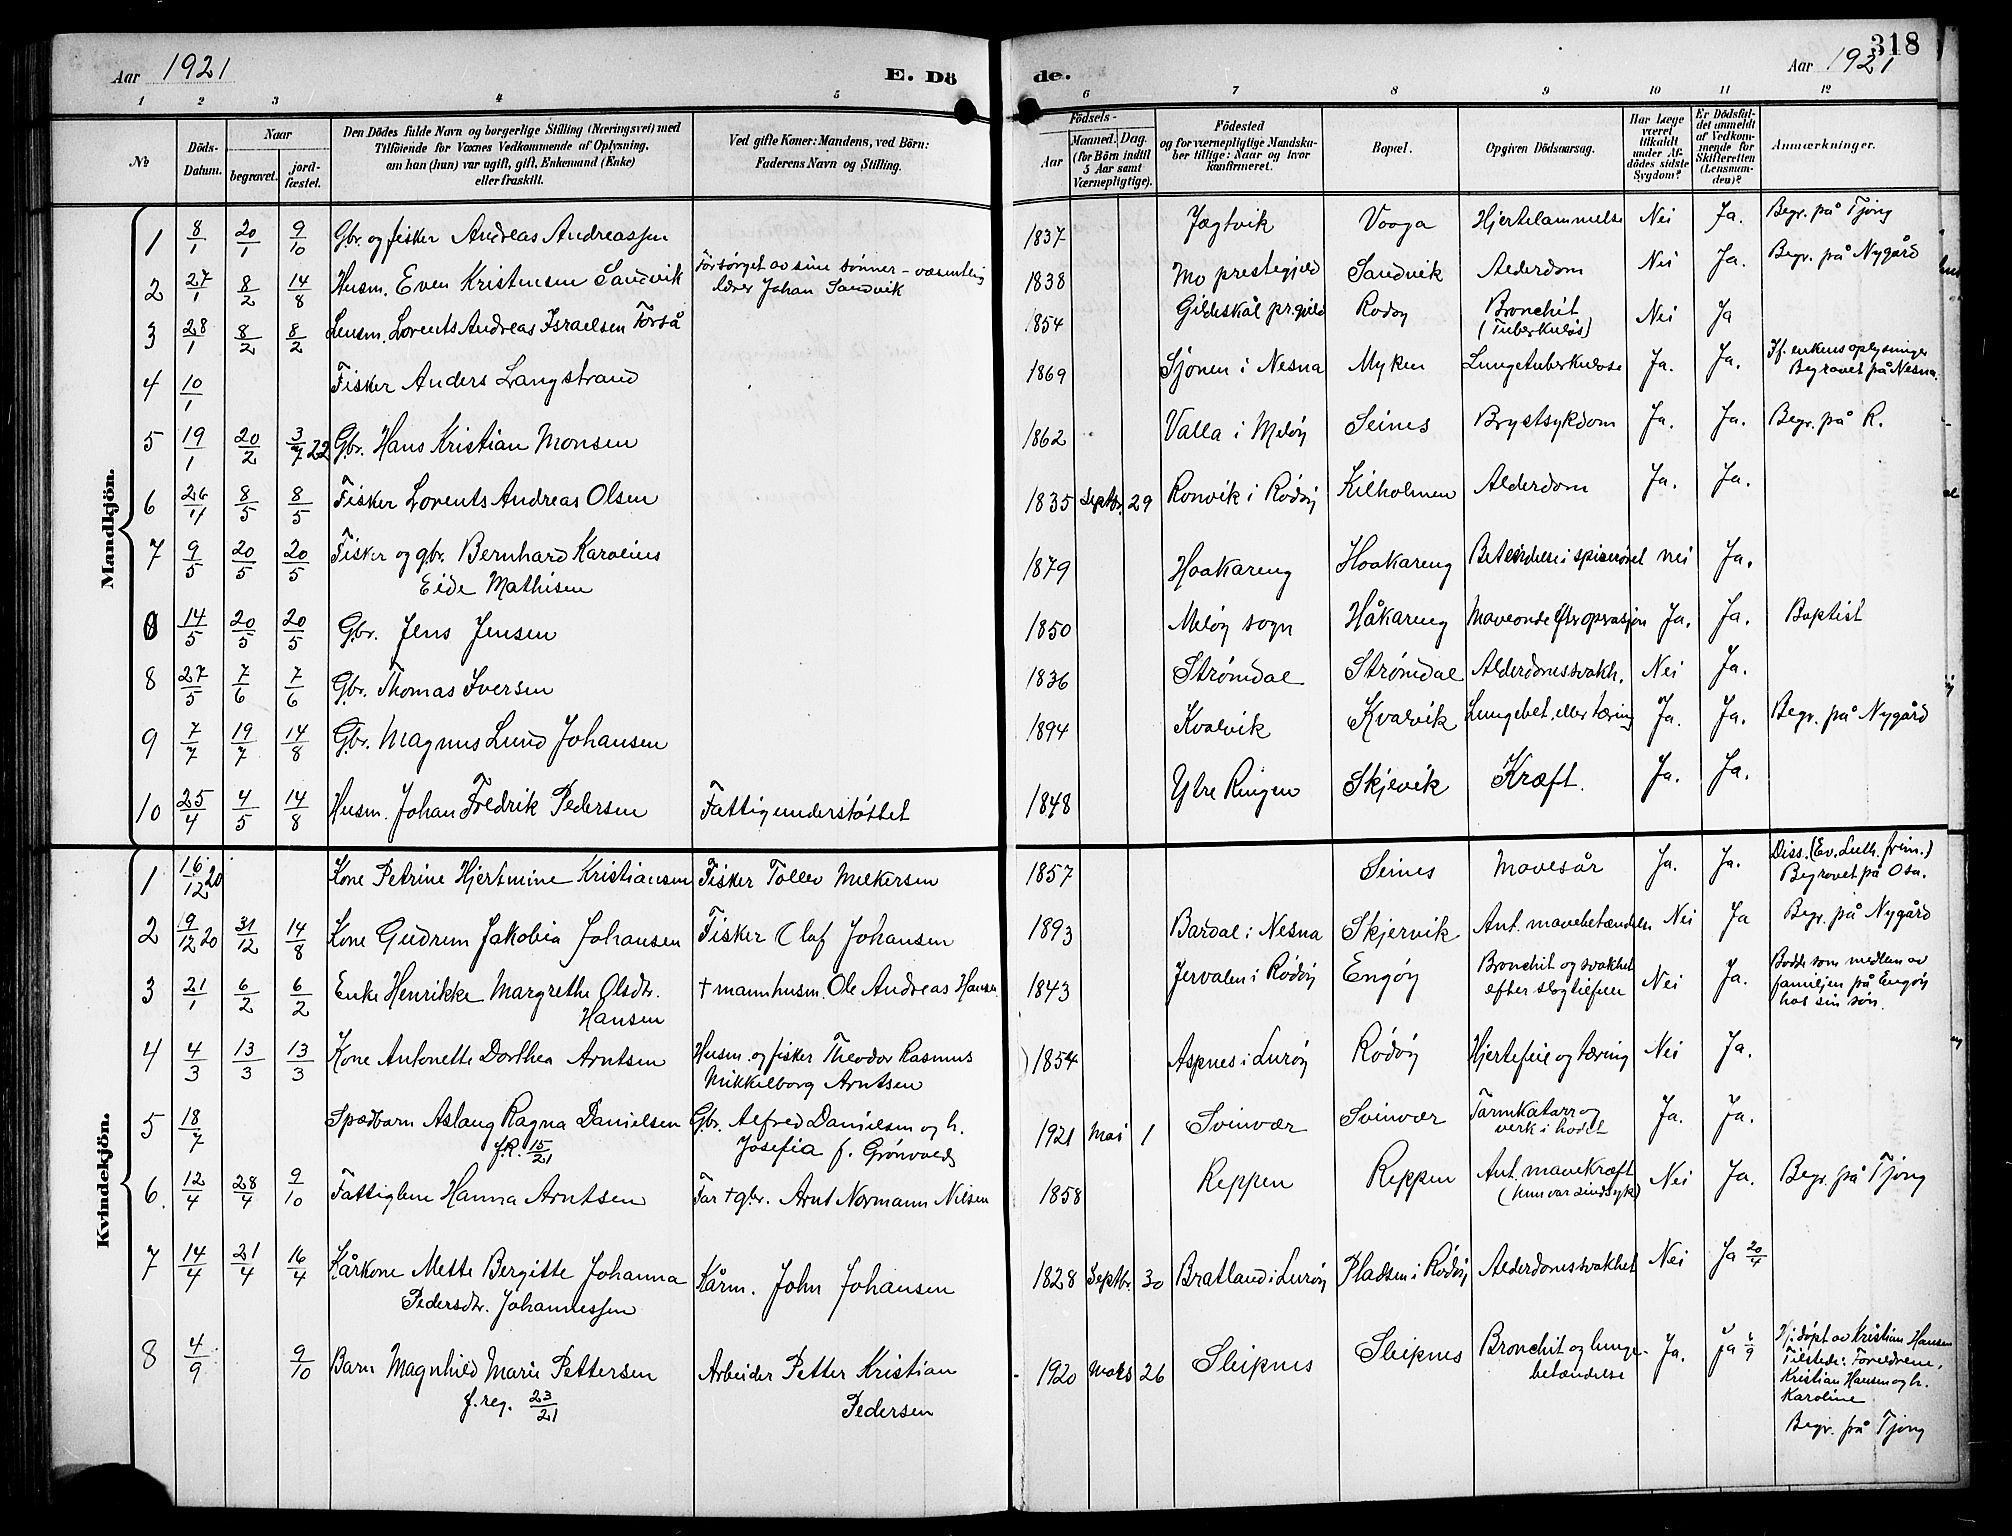 318
Aar 1921
E. Dö
de.
Aar 1921
1 2 3 4 5 6 7 8 9 10 11 12
№
Döds-Datum.
Naar
begravet.
jord-fæstet.
Den Dödes fulde Navn og borgerlige Stilling (Næringsvei) med
Tilföiende for Voxnes Vedkommende af Oplysning,
om han (hun) var ugift, gift, Enkemand (Enke)
eller fraskilt.
Ved gifte Koner: Mandens, ved Börn:
Faderens Navn og Stilling.
Födsels-
Aar
Maaned.
Dag.
(for Börn indtil
5 Aar samt
Værnepligtige).
Födested
og for værnepligtige Mandska-
ber tillige: Naar og hvor
konfirmeret.
Bopæl.
Opgiven Dödsaarsag.
Har Læge
været
tilkaldt
under Af-
dödes sidste
Sygdom?
Er Dödsfal-
det anmeldt
af Vedkom-
mende for
Skifteretten
(Lensman-
den)?
Anmærkninger.
Mandkjön.
1 8/1 20/1 9/10 Gbr. og fisker Andreas Andreassen 1837 Jægtvik Vaaga Hjertelammelse Nei Ja. Begr. på Tjong
2 27/1 8/2 14/8 Husm. Even Kristensen Sandvik Forsørget av sine sønner – væsentlig
lærer Johan Sandvik 1838 Mo prestegjeld Sandvik Alderdom Nei Ja. Begr. på Nygård
3 28/1 8/2 8/2 Lensm. Lorents Andreas Israelsen Forså 1854 Gildeskål pr.gjeld Rødøy Bronchit
(Tuberkuløs) Nei Ja
4 10/1 Fisker Anders Langstrand 1869 Sjonen i Nesna Myken Lungetuberkulose Ja. Ja. If. enkens oplysninger
Begravet på Nesna.
5 19/1 20/2 3/7 22 Gbr. Hans Kristian Monsen 1862 Valla i Meløy Seines Brystsykdom Ja. Ja. Begr. på R.
6 26/4 8/5 8/5 Fisker Lorents Andreas Olsen 1835 Septbr. 29 Ronvik i Rødøy Kilholmen Alderdom Ja. Ja.
7 9/5 20/5 20/5 Fisker og gbr. Bernhard Karolius
Eide Mathisen 1879 Haakareng Haakareng Betændelse i spiserøret nei Ja.
0 14/5 20/5 20/5 Gbr. Jens Jensen 1850 Meløy sogn Håkareng Maveonde efter operasjon Ja. Ja. Baptist
8 27/5 7/6 7/6 Gbr. Thomas Iversen 1836 Strømdal Strømdal Alderdomssvakh. Nei Ja.
9 7/7 19/7 14/8 Gbr. Magnus Lund Johansen 1894 Kvalvik Kvalvik Lungebet. eller tæring Ja. Ja. Begr. på Nygård
10 25/4 4/5 14/8 Husm. Johan Fredrik Pedersen Fattigunderstøttet 1848 Ytre Ringen Skjevik Kræft. Ja. Ja.
Kvindekjön.
1 16/12 20 Kone Petrine Hjertmine Kristiansen Fisker Tollev Melkersen 1857 Seines Mavesår Ja. Ja. Diss. (Ev. Luth. frim.)
Begravet på Osa.
2 9/12 20 31/12 14/8 Kone Gudrun Jakobia Johansen Fisker Olaf Johansen 1893 Bardal i Nesna Skjervik Ant. mavebetændelse Nei Ja Begr. på Nygård
3 21/1 6/2 6/2 Enke Henrikke Margrethe Olsdtr.
Hansen † mann husm. Ole Andreas Hansen 1843 Jervalen i Rødøy Engøy Bronchit og svakhet
efter slagtilfelle Nei Ja. Bodde som medlem av
familjen på Engøy
hos sin søn.
4 4/3 13/3 13/3 Kone Antonette Dorthea Arntsen Husm. og fisker Theodor Rasmus
Mikkelborg Arntsen 1854 Aspnes i Lurøy Rødøy Hjertefeil og tæring Nei Ja.
5 18/7 Spædbarn Aslaug Ragna Danielsen
f.R. 15/21 Gbr. Alfred Danielsen og h.
Josefia f. Grønvold 1921 Mai 1 Svinvær Svinvær Tarmkatarr og
verk i hodet Ja. Ja.
6. 12/4 28/4 9/10 Fattiglem Hanna Arntsen Far † gbr. Arnt Normann Nilsen 1858 Reppen Reppen Ant. mavekræft
(hun var sindsyk) Nei Ja. Begr. på Tjong
7 14/4 21/4 16/4 Kårkone Mette Bergitte Johanna
Pedersdtr. Johannessen Kårm. John Johansen 1828 Septbr. 30 Bratland i Lurøy Pladsen i Rødøy Alderdomssvakhet Nei Ja 20/4
8 4/9 9/10 Barn Magnhild Marie Pettersen
f. reg. 23/21 Arbeider Petter Kristian
Pedersen 1920 Mars 26 Sleipnes Sleipnes Bronchit og lunge-
betændelse Ja. Ja 6/9 Hj.døpt av Kristian Hansen
Tilstede: Forældrene,
Kristian Hansen og h.
Karoline
Begr. på Tjong